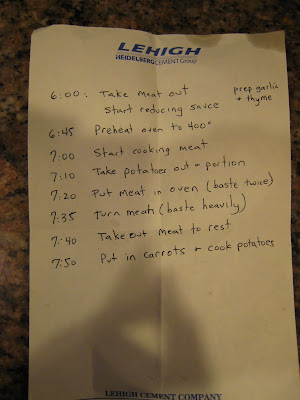 LEHIGH
HEIDELBERGCEMENT Group
6:00: Take meat out prep garlic
Start reducing sauce + thyme
6:45 Preheat oven to 400°
7:00 Start cooking meat
7:10 Take potatoes out + portion
7:20 Put meat in oven (baste twice)
7:35 Turn meat (baste heavily)
7:40 Take out meat to rest
7:50 Put in carrots + cook potatoes
LEHIGH CEMENT COMPANY